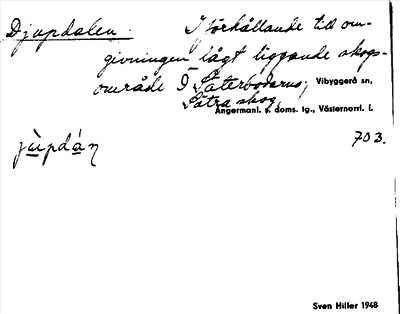 Djupdalen. I förhållande till om-
givningen lågt liggande skogs-
område I Säterbodarna, Vibyggerå sn,
Sätra skog,
Ångermanl. s. doms. tg., Västernorrl. l.
jùpdán 703.
Sven Hiller 1948